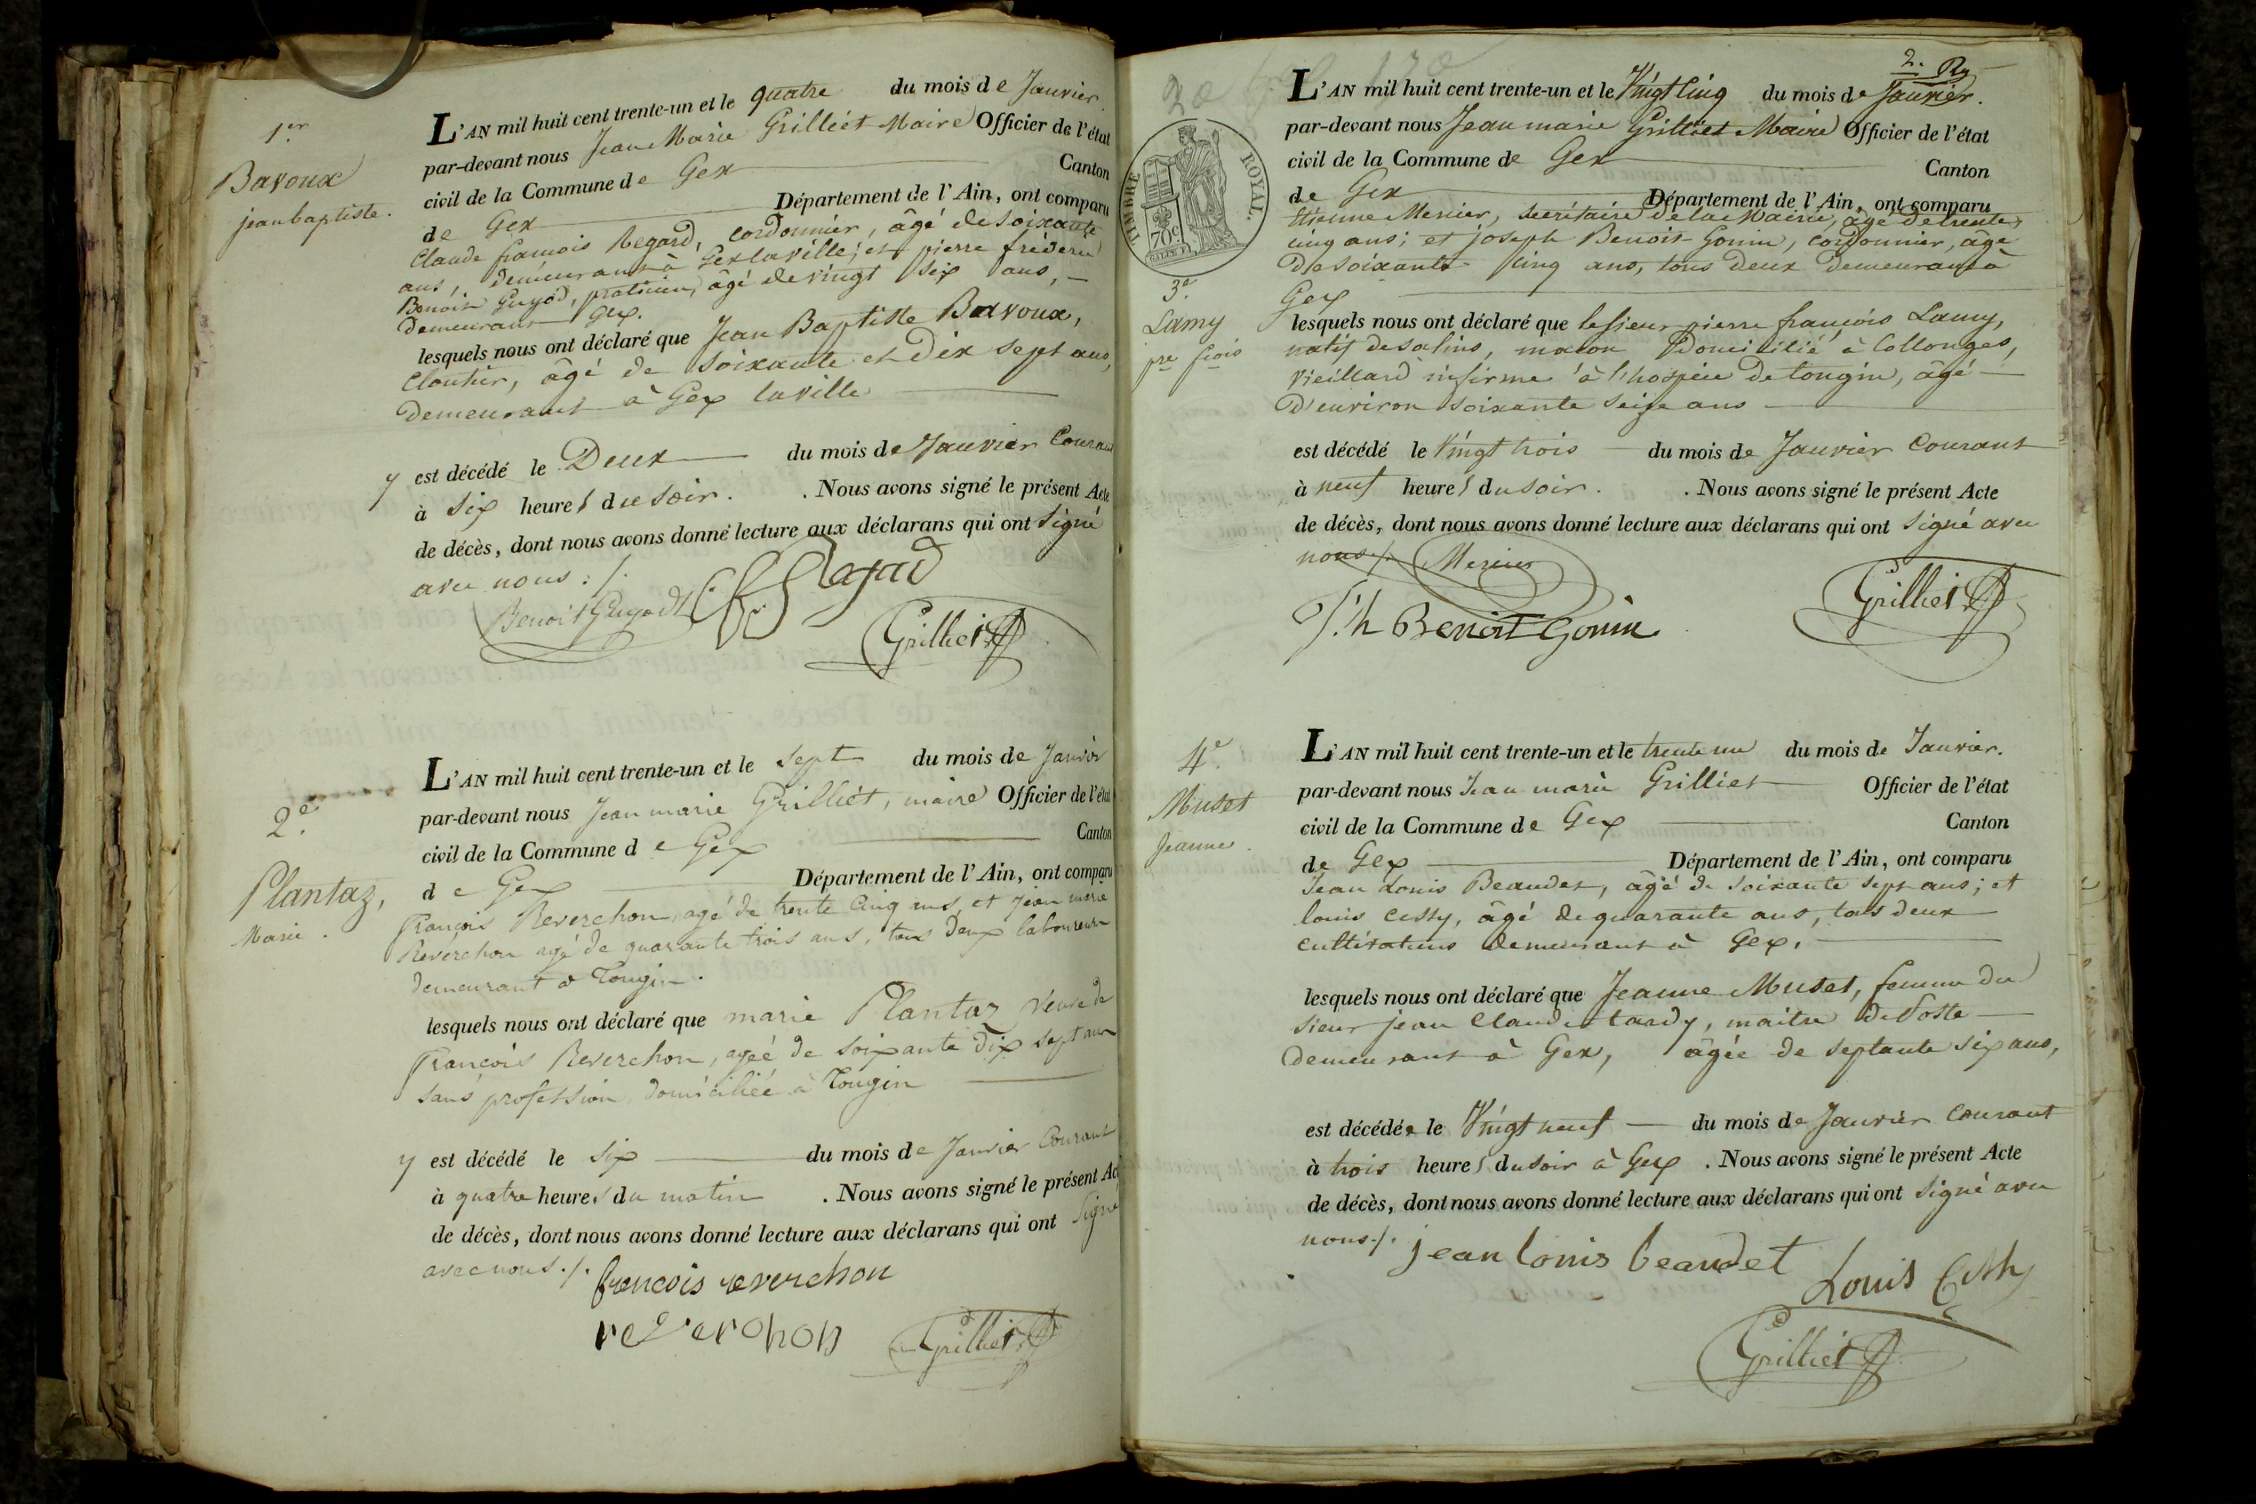 1er
Bavoux
jean baptiste.
L'AN mil huit cent trente-un et le quatre du mois de Janvier.
par-devant nous Jean Marie Grilliet Maire Officier de l'état
civil de la Commune de Gex Canton
de Gex Département de l'Ain, ont comparu
Claude francois Regard, cordonnier, âgé de soixante
ans, demeurant à Gex la ville; et pierre fréderic
Benoit Guyod, praticien, âgé de vingt six ans,
demeurant Gex.
lesquels nous ont déclaré que Jean Baptiste Bavoux,
Cloutier, âgé de soixante et Dix sept ans,
demeurant à Gex la ville
y est décédé le Deux du mois de Janvier Courant
à six heures du soir. . Nous avons signé le présent Acte
de décès, dont nous avons donné lecture aux déclarans qui ont signé
avec nous ./.
Benoit Guyod Regard
Grilliet
2e.
Plantaz,
Marie.
L'AN mil huit cent trente-un et le sept du mois de Janvier
par-devant nous Jean marie Grilliet, maire Officier de l'état
civil de la Commune de Gex Canton
de Gex Département de l'Ain, ont comparu
François Reverchon, agé de trente Cinq ans, et Jean marie
Reverchon agé de quarante trois ans, tous Deux laboureurs
demeurant à Tougin.
lesquels nous ont déclaré que marie Plantaz Veuve de
François Reverchon, agée de soixante Dix sept ans
sans profession, domiciliée à Tougin
y est décédé le Six du mois de Janvier Courant
à quatre heures du matin . Nous avons signé le présent Acte
de décès, dont nous avons donné lecture aux déclarans qui ont Signé
avec nous ./.
francois reverchon
reverchon Grilliet
2. Rg
TIMBRE ROYAL.
70c
L'AN mil huit cent trente-un et le Vingt Cinq du mois de Janvier.
par-devant nous Jean marie Grilliet Maire Officier de l'état
civil de la Commune de Gex Canton
de Gex Département de l'Ain, ont comparu
Etienne Mercier, secrétaire de la Mairie, âgé de trente
cinq ans; et joseph Benoit-Gonin, cordonnier, âgé
de soixante cinq ans, tous deux demeurant à
Gex
3e.
Lamy
pre. frois
lesquels nous ont déclaré que le sieur pierre françois Lamy,
natif de salins, macon Domicilié à Collonges,
Vieillard infirme à l'hospice de tougin, âgé
d'environ soixante seize ans
est décédé le Vingt trois du mois de Janvier Courant
à neuf heures du soir. . Nous avons signé le présent Acte
de décès, dont nous avons donné lecture aux déclarans qui ont signé avec
nous ./. Mercier
Jh Benoit Gonin Grilliet
4e.
Muset
Jeanne.
L'AN mil huit cent trente-un et le trente un du mois de Janvier.
par-devant nous Jean marie Grilliet Officier de l'état
civil de la Commune de Gex Canton
de Gex Département de l'Ain, ont comparu
Jean Louis Beaudet, âgé de soixante sept ans; et
louis Cessy, âgé de quarante ans, tous deux
cultivateurs demeurant à Gex.
lesquels nous ont déclaré que Jeanne Muset, femme du
sieur jean Claude tardy, maitre De Poste
demeurant à Gex, âgée de septante six ans,
est décédée le Vingt neuf du mois de Janvier Courant
à trois heures du soir à Gex . Nous avons signé le présent Acte
de décès, dont nous avons donné lecture aux déclarans qui ont signé avec
nous ./. jean louis beaudet
Louis Cessy
Grilliet